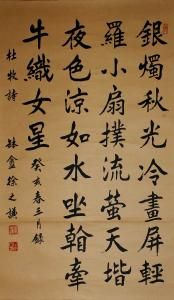 銀燭秋光冷畫屏輕
羅小扇撲流螢天堦
夜色涼如水坐牽
牛織女星
癸亥春三月錄
杜牧詩
盦徐之